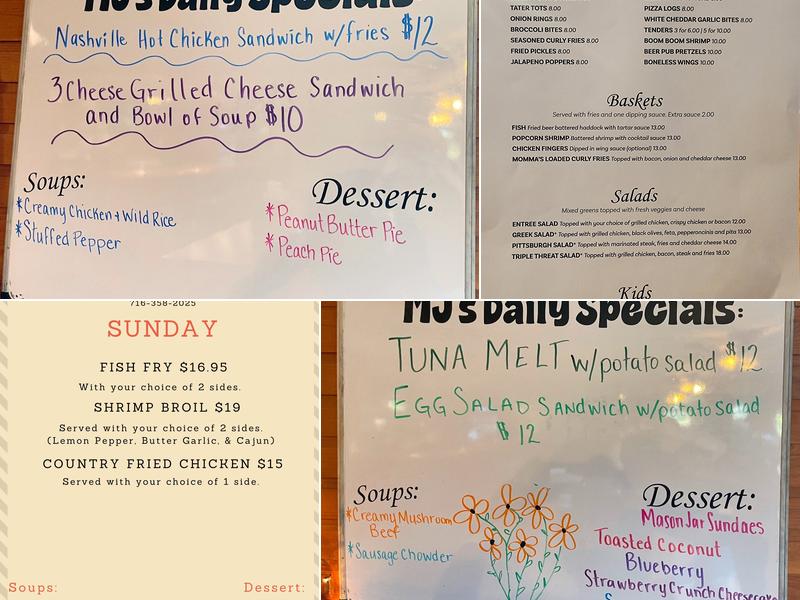 MJ's Daily Specials
Nashville Hot Chicken Sandwich w/fries $12
3 Cheese Grilled Cheese Sandwich
and Bowl of Soup $10
Soups:
*Creamy Chicken + Wild Rice
*Stuffed Pepper
Dessert:
*Peanut Butter Pie
*Peach Pie
TATER TOTS 8.00
ONION RINGS 8.00
BROCCOLI BITES 8.00
SEASONED CURLY FRIES 8.00
FRIED PICKLES 8.00
JALAPENO POPPERS 8.00
PIZZA LOGS 8.00
WHITE CHEDDAR GARLIC BITES 8.00
TENDERS 3 for 6.00 | 5 for 10.00
BOOM BOOM SHRIMP 10.00
BEER PUB PRETZELS 10.00
BONELESS WINGS 10.00
Baskets
Served with fries and one dipping sauce. Extra sauce 2.00
FISH Fried beer battered haddock with tartar sauce 13.00
POPCORN SHRIMP Battered shrimp with cocktail sauce 13.00
CHICKEN FINGERS Dipped in wing sauce (optional) 13.00
MOMMA'S LOADED CURLY FRIES Topped with bacon, onion and cheddar cheese 13.00
Salads
Mixed greens topped with fresh veggies and cheese
ENTREE SALAD Topped with your choice of grilled chicken, crispy chicken or bacon 12.00
GREEK SALAD* Topped with grilled chicken, black olives, feta, pepperoncinis and pita 13.00
PITTSBURGH SALAD* Topped with marinated steak, fries and cheddar cheese 14.00
TRIPLE THREAT SALAD* Topped with grilled chicken, bacon, steak and fries 18.00
Kids
716-358-2025
SUNDAY
FISH FRY $16.95
With your choice of 2 sides.
SHRIMP BROIL $19
Served with your choice of 2 sides.
(Lemon Pepper, Butter Garlic, & Cajun)
COUNTRY FRIED CHICKEN $15
Served with your choice of 1 side.
Soups:
Dessert:
MJ's Daily Specials:
TUNA MELT w/potato salad $12
EGG SALAD SANDWICH w/potato salad
$12
Soups:
*Creamy Mushroom
Beef
*Sausage Chowder
Dessert:
Mason Jar Sundaes
Toasted Coconut
Blueberry
Strawberry Crunch Cheesecake